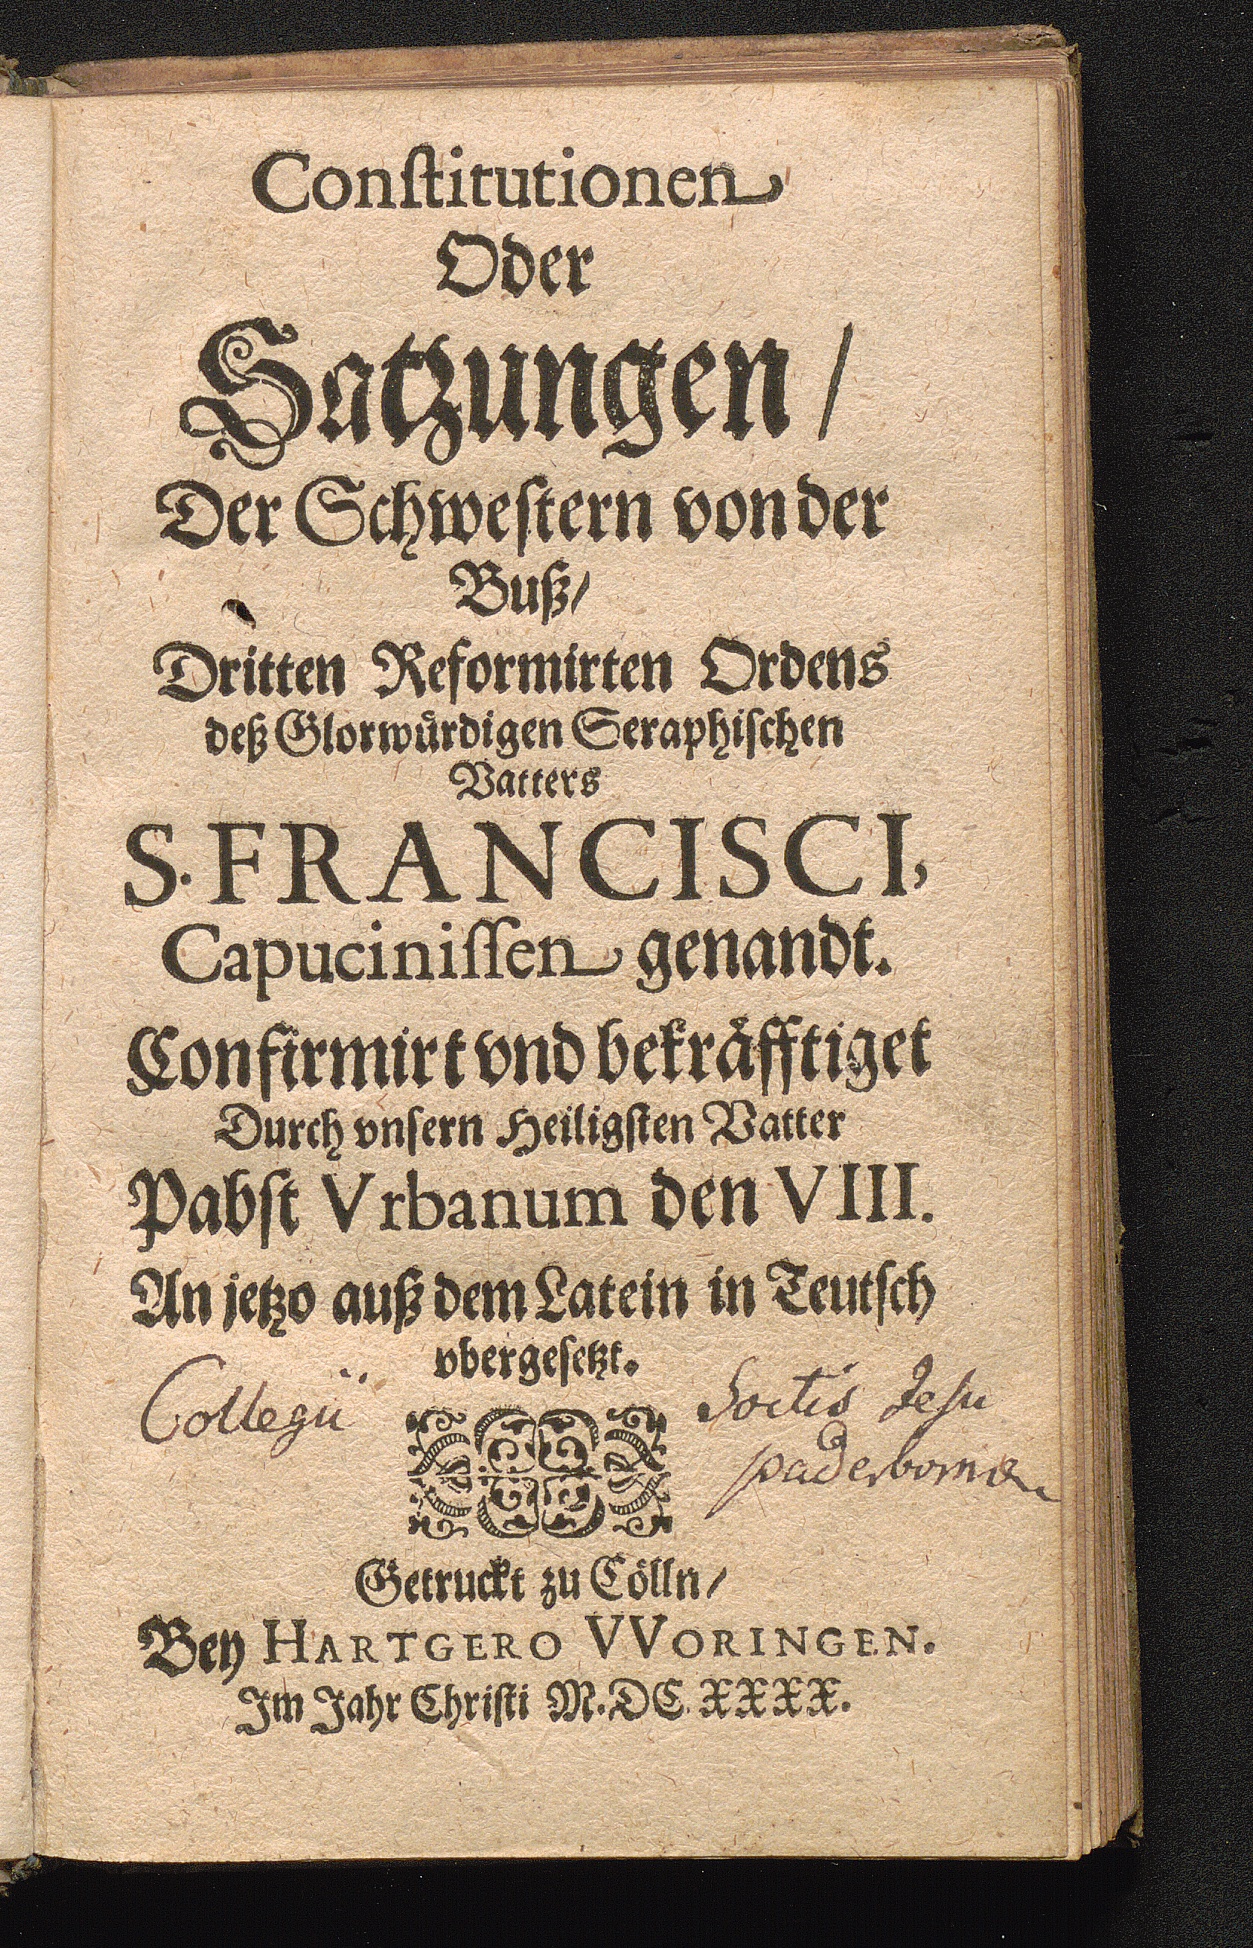 Constitutionen
Oder
Satzungen /
Der Schwestern von der
Buß /
Dritten Reformirten Ordens
deß Glorwuͤrdigen Seraphischen
Vatters
S. FRANCISCI,
Capucinissen genandt.
Confirmirt vnd bekraͤfftiget
Durch vnsern Heiligsten Vatter
Pabst Vrbanum den VIII.
An jetzo auß dem Latein in Teutsch
vbergesetzt.
Collegii Soctis Jesu
paderbornæ
Getruckt zu Cölln /
Bey HARTGERO VVORINGEN.
Im Jahr Christi M. DC. XXXX.